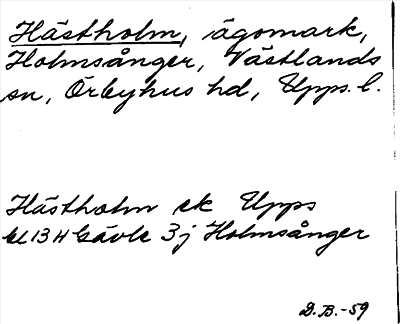 Hästholm, ägomark,
Holmsånger, Västlands
sn, Örbyhus hd, Upps. l.
Hästholm ek Upps
bl 13 H Gävle 3j Holmsånger
D.B.-59